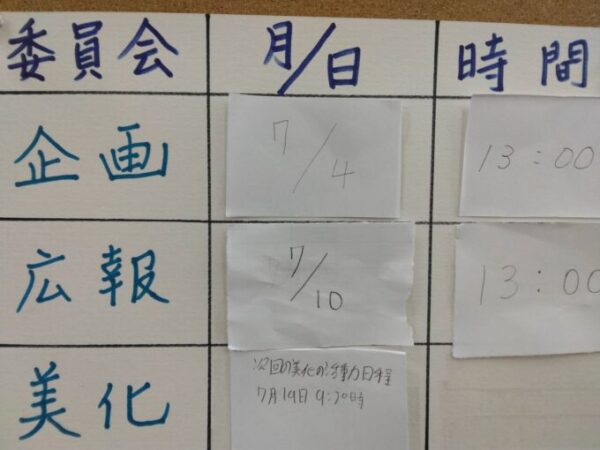 委員会 月/日 時間
企画 7/4 13:00
広報 7/10 13:00
美化 次回の美化の活動日程
7月19日 9:30時